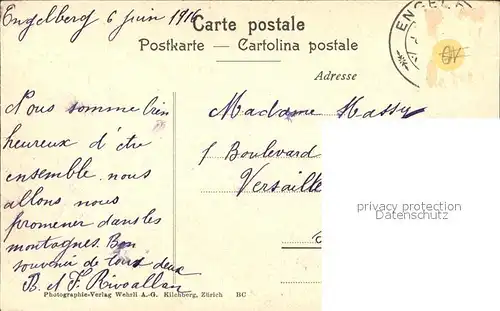 Engelberg 6 juin 1916
Carte postale
Postkarte — Cartolina postale
Adresse
ENGELB
Nous somme bien
heureux d'être
ensemble. nous
allons nous
promener dans les
montagnes. Bon
souvenir de tous deux
B. et F. Rivoallan
Madame Massy
1 Boulevard
Versaille
privacy protection
Datenschutz
Photographie-Verlag Wehrli A.-G. Kilchberg, Zürich BC